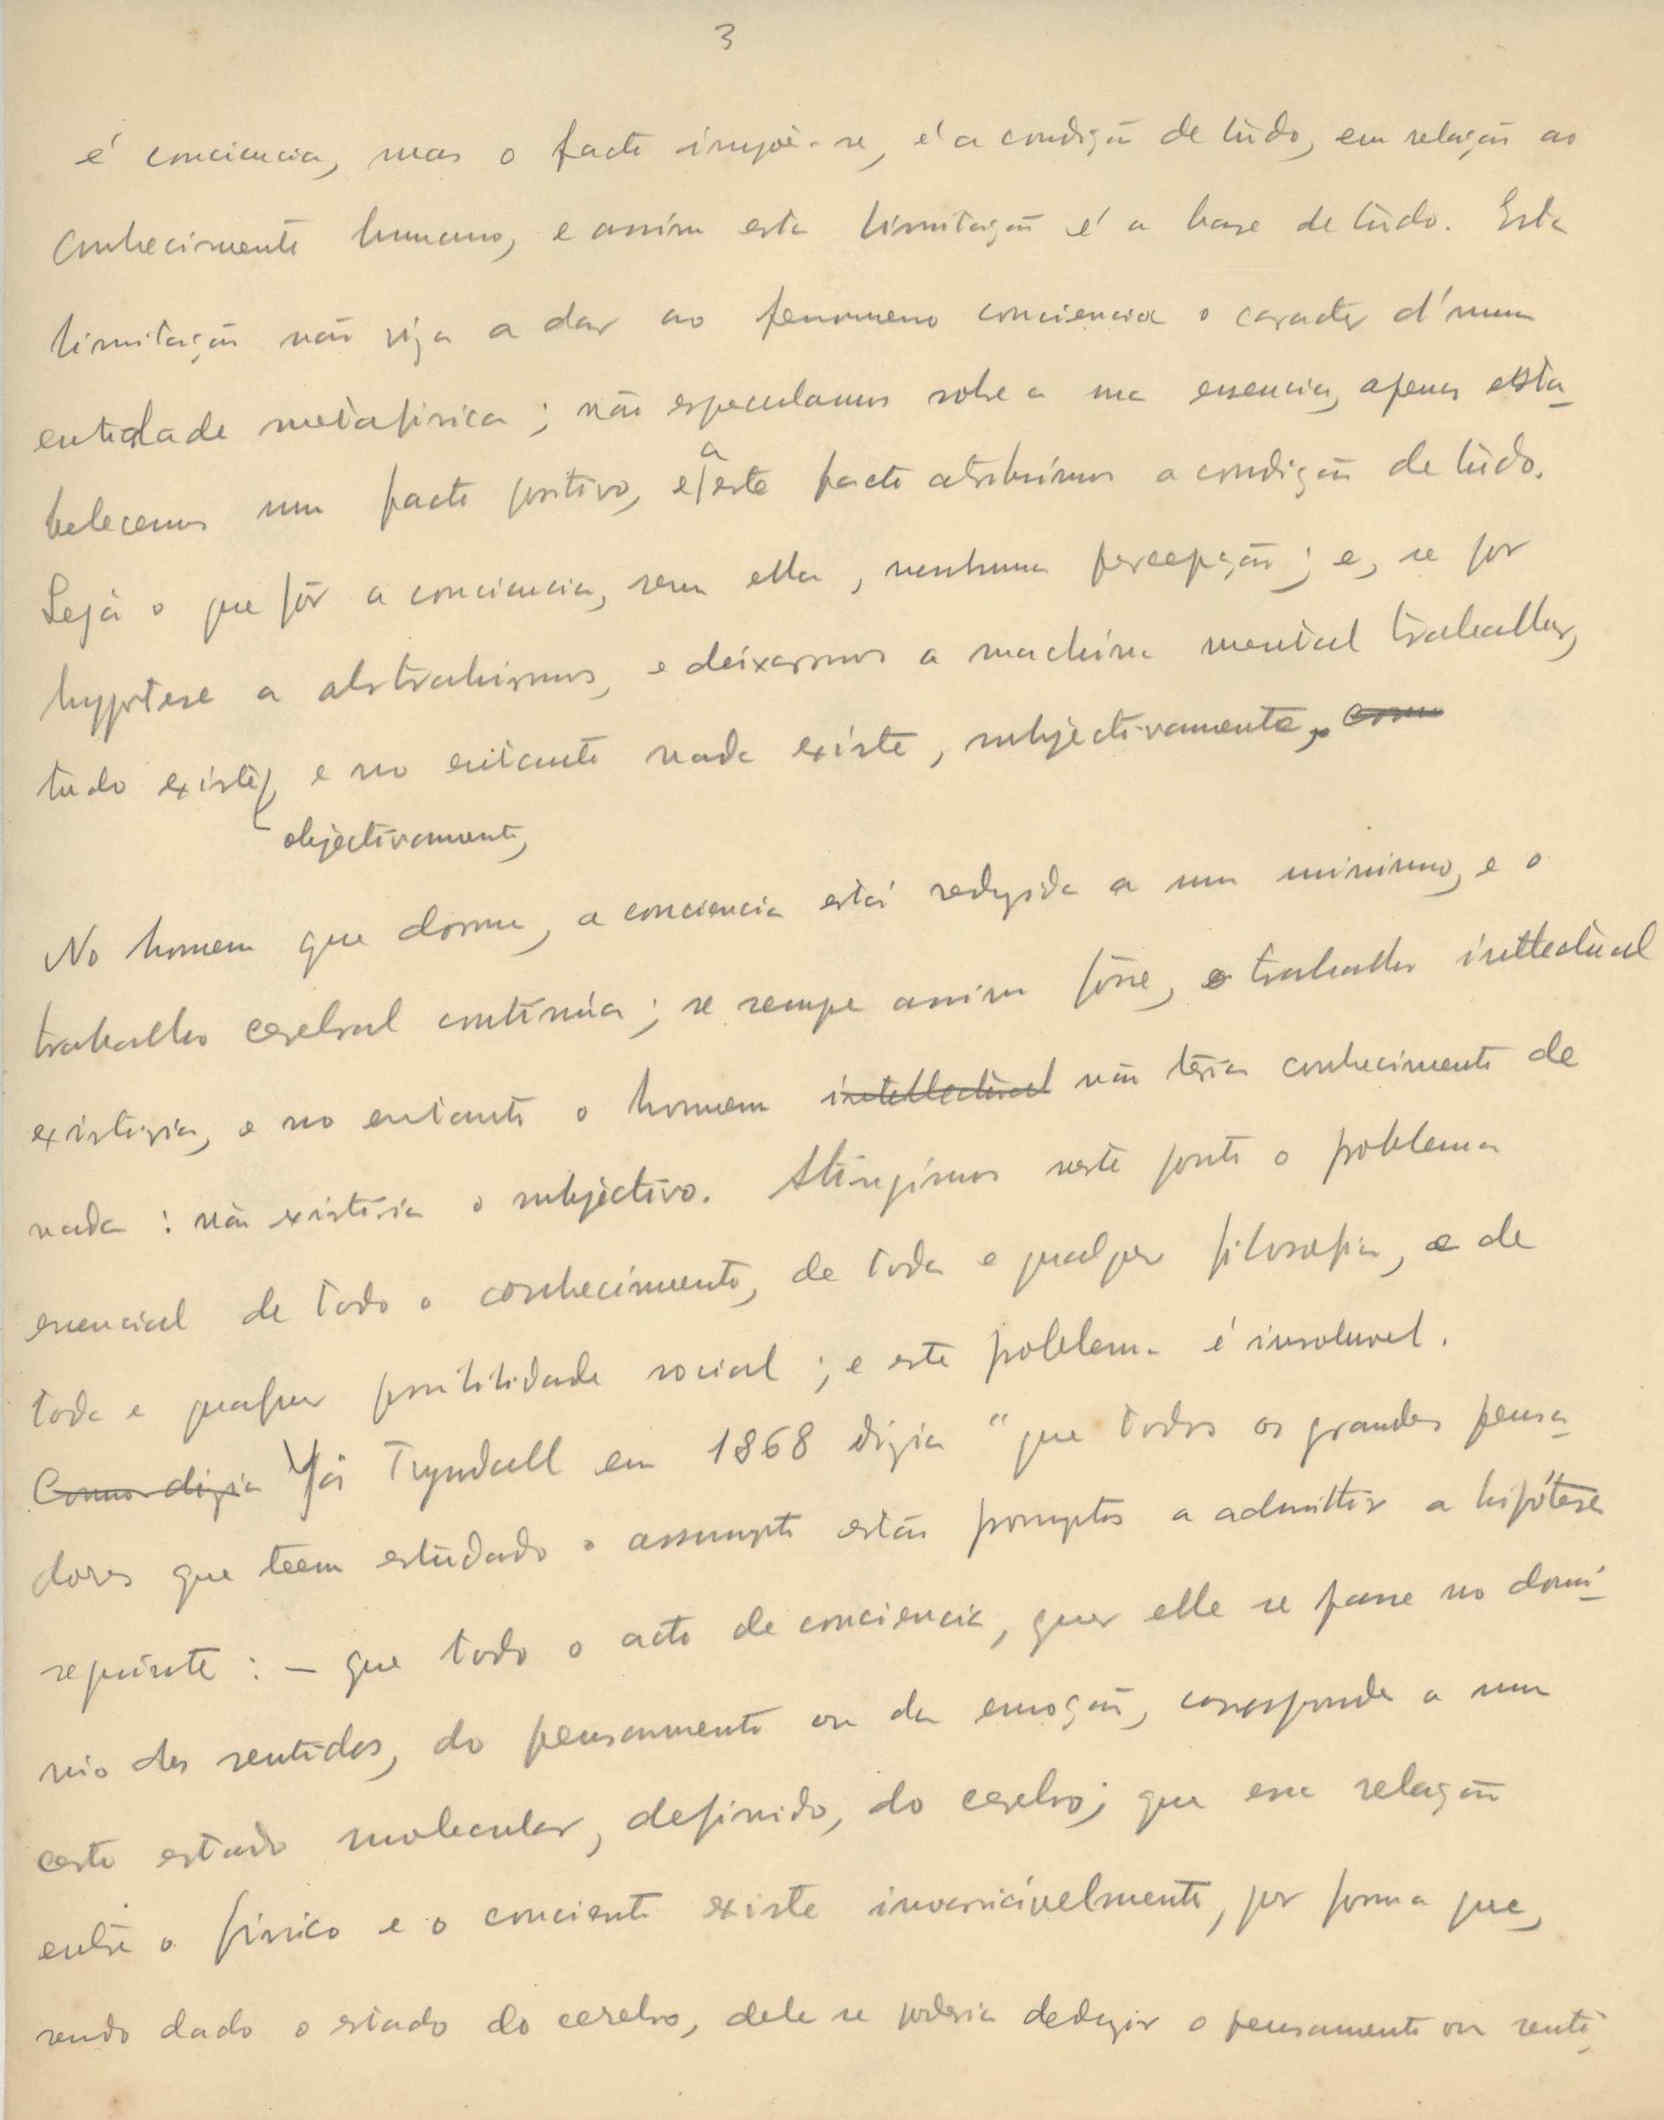 3
é conciencia, mas o facto impõe-se, é a condição de tudo, em relação ao
conhecimento humano, e assim esta limitação é a base de tudo. Esta
limitação não visa a dar ao fenomeno conciencia o caracter d'uma
entidade metafisica; não especulamos sobre a sua essencia, apenas esta-
belecemos um facto positivo, e a este facto atribuimos a condição de tudo.
Seja o que fôr a conciencia, sem ella, nenhuma percepção; e, se por
hypotese a abstrahirmos, e deixarmos a machina mental trabalhar,
tudo existe, e no entanto nada existe, subjectivamente, com
objectivamente,
No homem que dorme, a conciencia está reduzida a um minimo, e o
trabalho cerebral continúa; se sempe assim fôsse, o trabalho intellectual
existiria, e no entanto o homem intellectual não teria conhecimento de
nada: não existiria o subjectivo. Atingimos neste ponto o problema
essencial de todo o conhecimento, de toda e qualquer filosofia, e de
toda e qualquer possibilidade social; e este problema é insoluvel.
Como dizia Já Tyndall em 1868 dizia "que todos os grandes pensa-
dores que teem estudado o assumpto estão promptos a admittir a hipótese
seguinte: — que todo o acto de conciencia, quer elle se passe no domi-
nio dos sentidos, do pensamento ou da emoção, corresponde a um
certo estado molecular, definido, do cerebro; que essa relação
entre o fisico e o conciente existe invariávelmente, por forma que,
sendo dado o estado do cerebro, dele se poderia deduzir o pensamento ou senti-